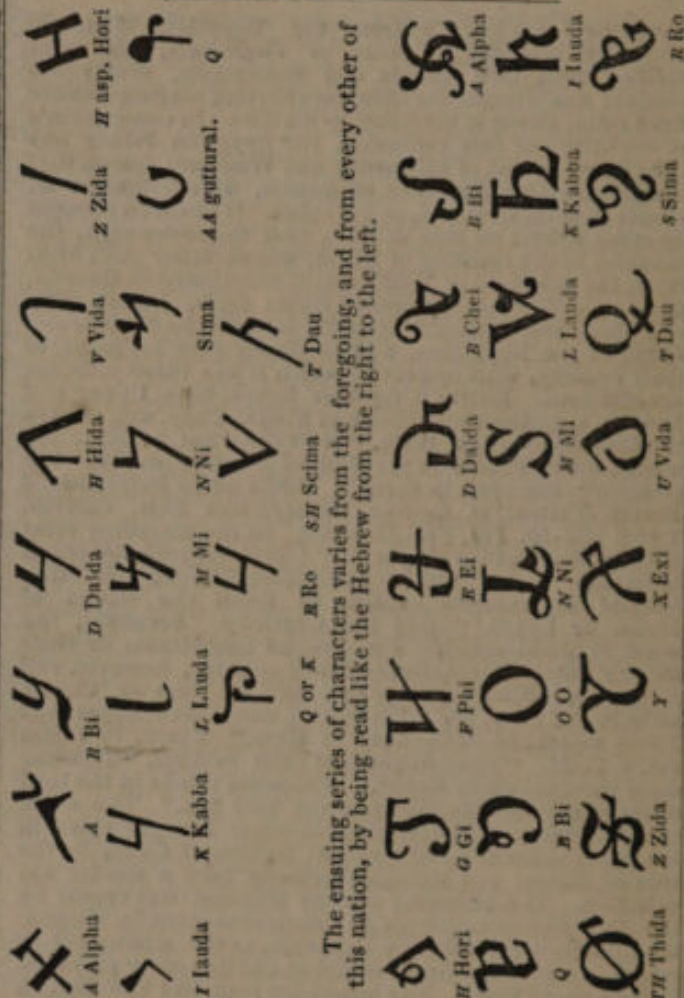 A Alpha A B Bi D Daida H Hida V Vida Z Zida H asp. Hori
I Iauda K Kabba L Lauda M Mi N Ni Sima AA guttural. Q
Q or K R Ro SH Scima T Dau
The ensuing series of characters varies from the foregoing, and from every other of
this nation, by being read like the Hebrew from the right to the left.
H Hori G Gi F Phi E Ei D Daida B Chei B Bi A Alpha
Q B Bi O O N Ni M Mi L Lauda K Kabba I Iauda
TH Thida Z Zida Y X Exi U Vida T Dau S Sima R Ro